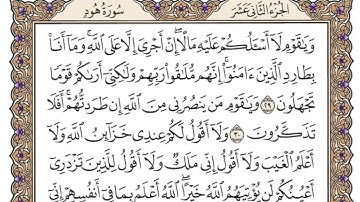 الجزء الثاني عشر سورة هود
وَيَٰقَوۡمِ لَآ أَسۡـَٔلُكُمۡ عَلَيۡهِ مَالًاۖ إِنۡ أَجۡرِيَ إِلَّا عَلَى ٱللَّهِۚ وَمَآ أَنَا۠
بِطَارِدِ ٱلَّذِينَ ءَامَنُوٓاْۚ إِنَّهُم مُّلَٰقُواْ رَبِّهِمۡ وَلَٰكِنِّيٓ أَرَىٰكُمۡ قَوۡمٗا
تَجۡهَلُونَ ٢٩ وَيَٰقَوۡمِ مَن يَنصُرُنِي مِنَ ٱللَّهِ إِن طَرَدتُّهُمۡۚ أَفَلَا
تَذَكَّرُونَ ٣٠ وَلَآ أَقُولُ لَكُمۡ عِندِي خَزَآئِنُ ٱللَّهِ وَلَآ
أَعۡلَمُ ٱلۡغَيۡبَ وَلَآ أَقُولُ إِنِّي مَلَكٞ وَلَآ أَقُولُ لِلَّذِينَ تَزۡدَرِيٓ
أَعۡيُنُكُمۡ لَن يُؤۡتِيَهُمُ ٱللَّهُ خَيۡرًاۖ ٱللَّهُ أَعۡلَمُ بِمَا فِيٓ أَنفُسِهِمۡ إِنِّيٓ